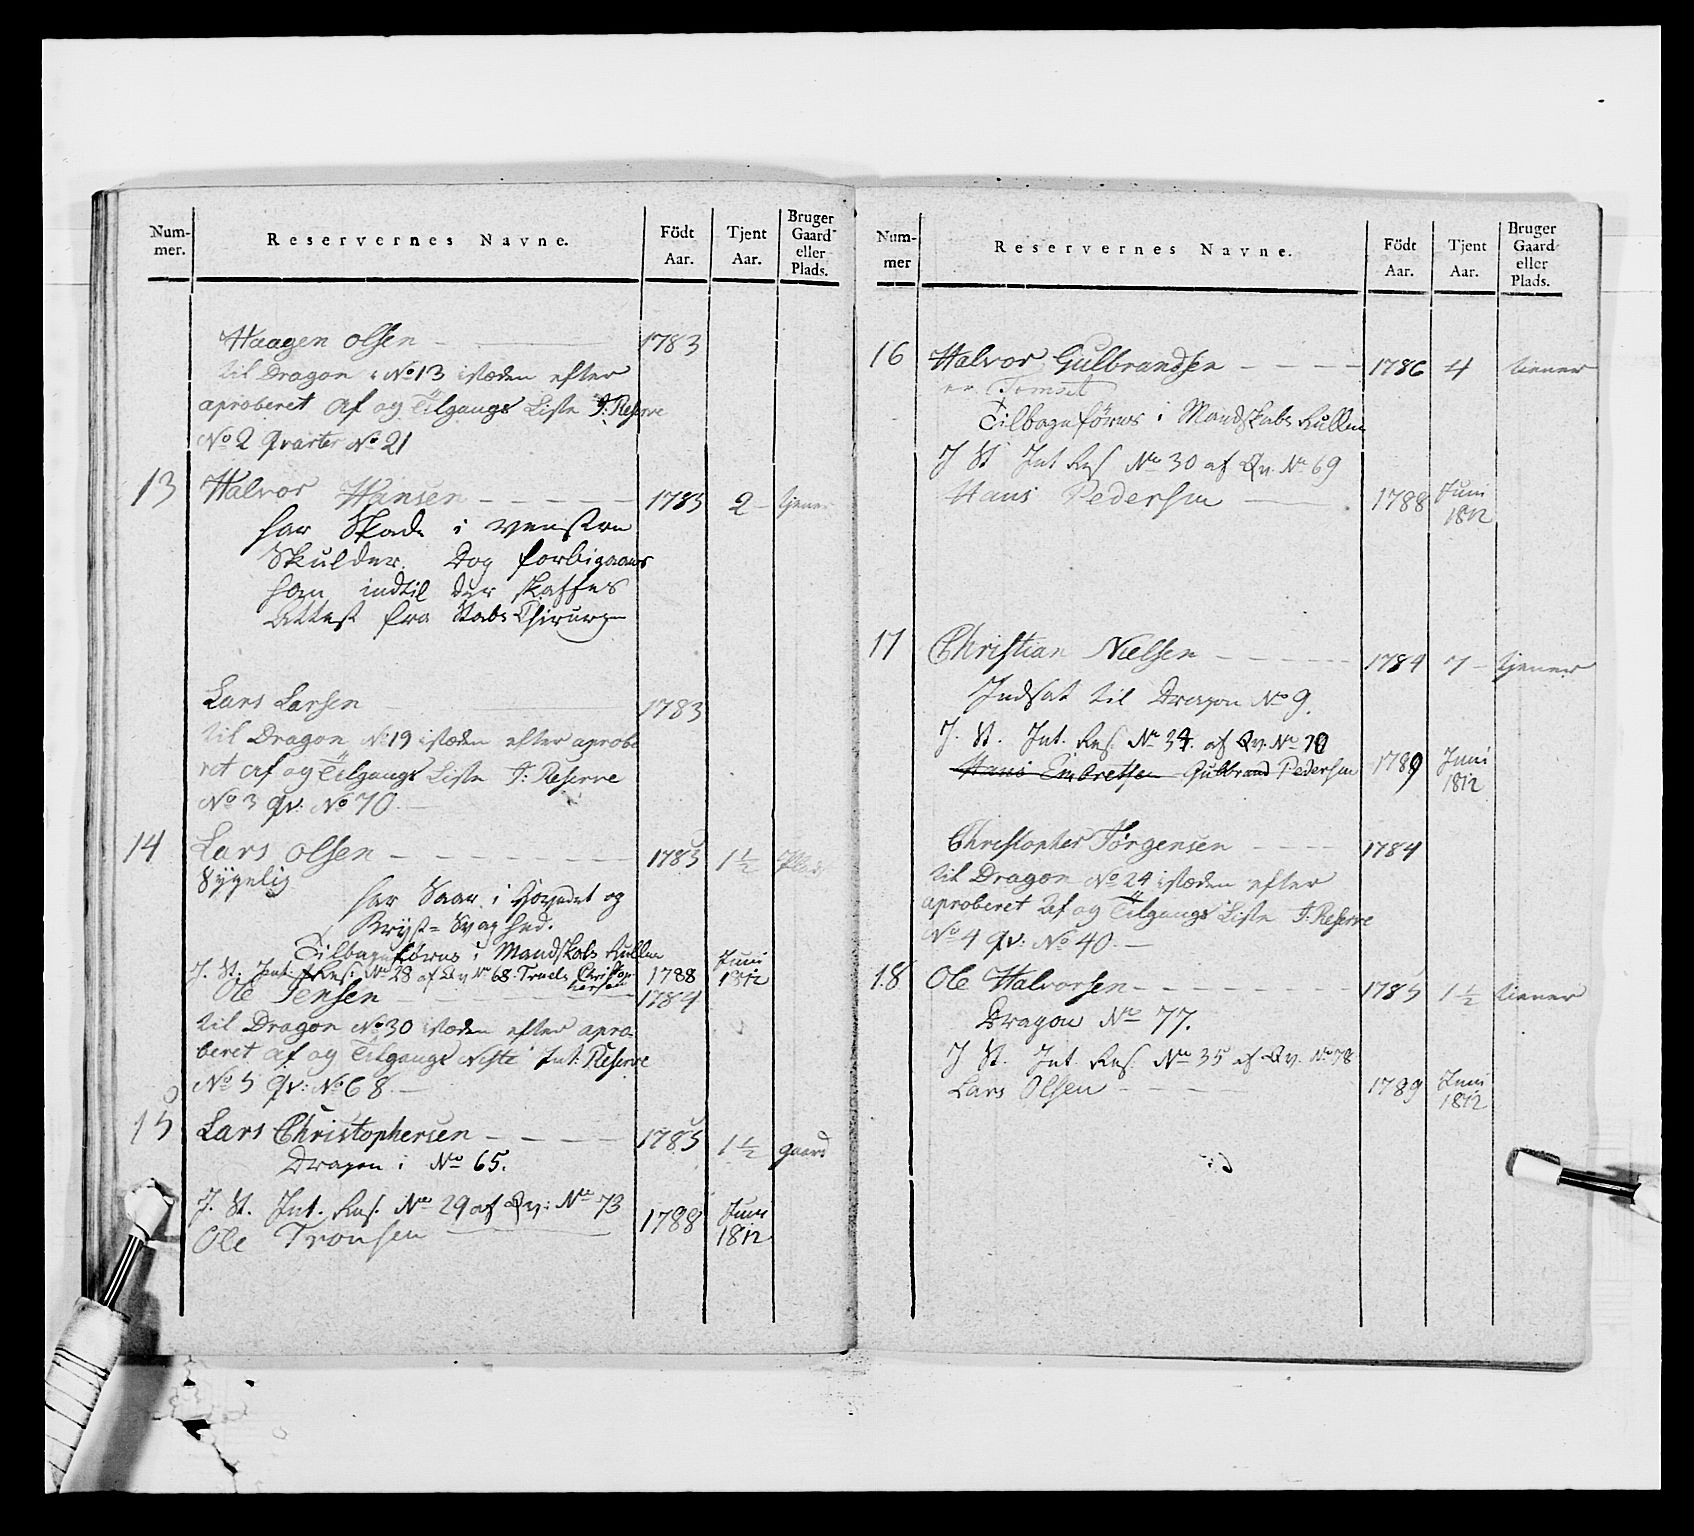 Num-
mer.
Reservernes Navne.
Födt
Aar.
Tjent
Aar.
Bruger
Gaard
eller
Plads.
Haagen Olsen 1783
til Dragon No 13 istæden efter
aproberet Af og Tilgangs Liste J: Reserve
No 2 Qvarter No 21
13 Halvor Hansen 1783 2 tjener
har Skade i venstre
Skulder. Dog forbigaaes
han indtil der skaffes
Attest fra Stabs Chirurg
Lars Larsen 1783
til Dragon No 19 istæden efter aprobe
ret Af og Tilgangs Liste J: Reserve
No 3 qv: No 70.
14 Lars Olsen 1783 1½ Plads
Sygelig
har Saar i Hovedet og
Bryst-Svaghed.
Tilbageføres i Mandskabs Rullen
J. St. Int. Res: No 28 af Qv No 68. Truels Christop
hersen 1788 Juni 1812
Ole Jensen 1784
til Dragon No 30 istæden efter apro
beret Af og Tilgangs Liste Int: Reserve
No 5 Qv: No 68.
15 Lars Christophersen 1785 1½ gaard
Dragon No 65.
J. St. Int. Res. No 29 af Qv: No 73
Ole Tronsen 1788 Juni 1812
Num-
mer
Reservernes Navne.
Födt
Aar.
Tjent
Aar.
Bruger
Gaard
eller
Plads.
16 Halvor Gulbrandsen 1786 4 tiener
er
Tilbageføres i Mandskabs Rullen
J St Int Res No 30 af Qv. No 69
Hans Pedersen 1788 Juni 1812
17 Christian Nielsen 1784 7 tjener
Indsat til Dragon No 9.
J. St. Int. Res. No 34. af Qv. No 70
Hans Embretsen Gulbrand Pedersen 1789 Juni 1812
Christopher Jørgensen 1784
til Dragon No 24 istæden efter
aproberet Af og Tilgangs Liste J: Reserve
No 4 qv: No 40.
18 Ole Halvorsen 1785 1½ tiener
Dragon No 77.
J St. Int Res. No 35 af Qv. No 78
Lars Olsen 1789 Juni 1812